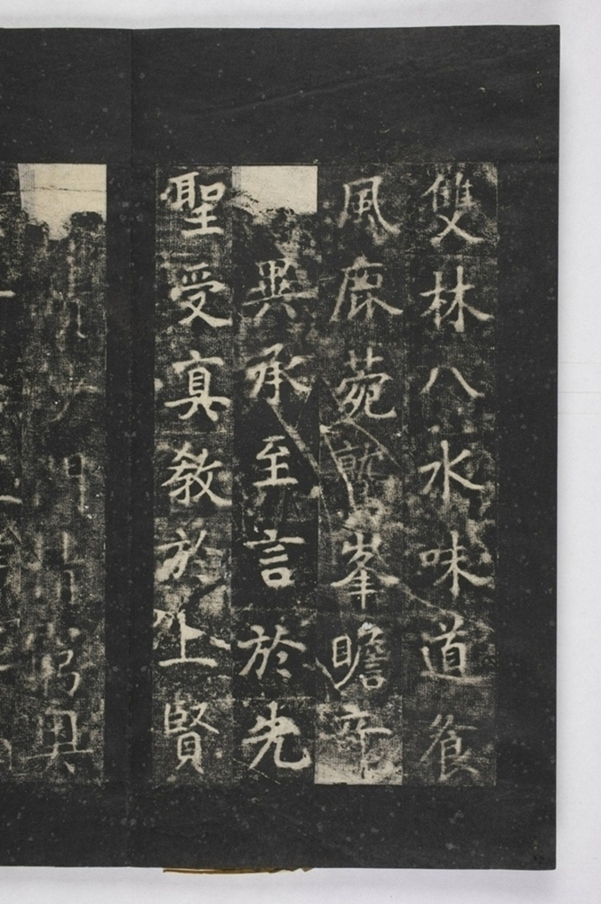 雙林八水味道飡
風鹿菀鷲峯瞻奇
異承至言於先
聖受真教於上賢
門精窮奧